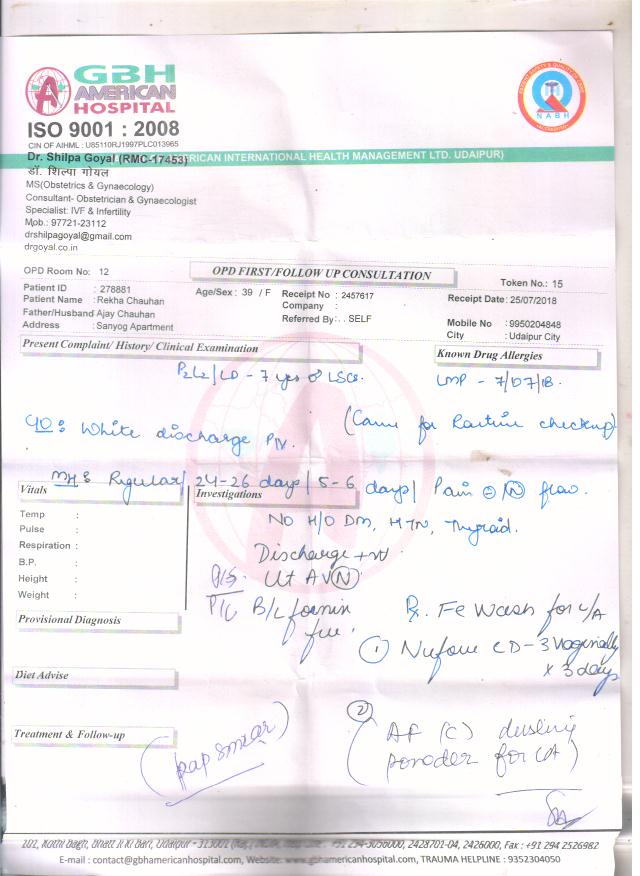 GBH
AMERICAN
HOSPITAL
ISO 9001 : 2008
CIN OF AIHML : U85110RJ1997PLC013965
AMERICAN INTERNATIONAL HEALTH MANAGEMENT LTD. UDAIPUR)
NABH
Dr. Shilpa Goyal (RMC-17453)
डॉ. शिल्पा गोयल
MS(Obstetrics & Gynaecology)
Consultant- Obstetrician & Gynaecologist
Specialist: IVF & Infertility
Mob.: 97721-23112
drshilpagoyal@gmail.com
drgoyal.co.in
OPD Room No: 12
OPD FIRST/FOLLOW UP CONSULTATION
Token No.: 15
Patient ID : 278881
Age/Sex: 39 / F
Receipt No : 2457617
Receipt Date: 25/07/2018
Patient Name : Rekha Chauhan
Company :
Father/Husband Ajay Chauhan
Referred By: . . SELF
Mobile No : 9950204848
Address : Sanyog Apartment
City : Udaipur City
Present Complaint/ History/ Clinical Examination
Known Drug Allergies
P2L2/LD - 7 yrs LSCS.
LMP - 7/07/18.
C/O: White discharge P/V.
(Came for Routine checkup)
MH: Regular/ 24-26 days/ 5-6 days/ Pain flow.
Vitals
Investigations
NO H/O DM, HTN, Thyroid.
Temp :
Pulse :
Respiration :
B.P. :
Height :
Weight :
Discharge +nt
P/S.
Ut AV N
P/V B/L fornix
free.
Rx. Wash for L/A
① CD - 3 Vaginally
x 3 days
Provisional Diagnosis
Diet Advise
Treatment & Follow-up
(pap smear)
② AF (C) dusting
powder for LA)
313001
2428701-04, 2426000, Fax : +91 294 2526982
E-mail : contact@gbhamericanhospital.com, Website: www.gbhamericanhospital.com, TRAUMA HELPLINE : 9352304050